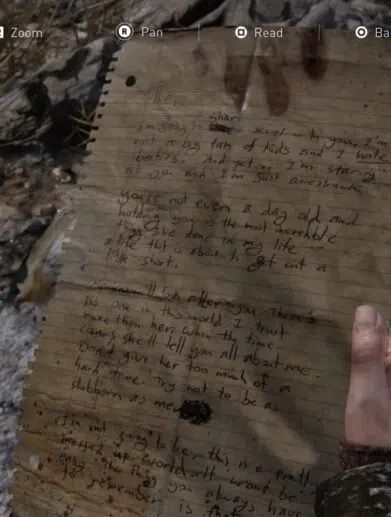 Zoom
R Pan
Read
Ba
Ellie,
share
I'm going to secret with you, I'm
not a big fan of kids and I hate
babies. And yet... I'm staring
at you and I'm just awestruck.
You're not even a day old and
holding you is the most incredible
thing I've done in my life -
a life that is about to get cut a
little short.
will look after you. There's
no one in this world I trust
more than her. When the time
comes she'll tell you all about me.
Don't give her too much of a
hard time. Try not to be as
stubborn as me
I'm not going to lie, this is a pretty
messed up world. It won't be
easy. The thing you always have
to remember is that